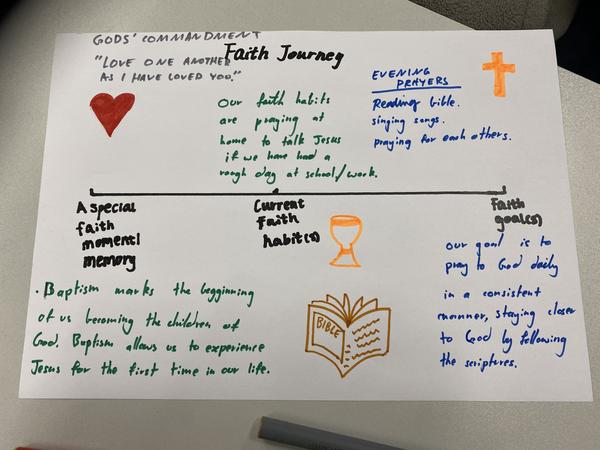 GODS' COMMANDMENT
"LOVE ONE ANOTHER
AS I HAVE LOVED YOU."
Faith Journey
Our faith habits
are praying at
home to talk Jesus
if we have had a
rough day at school/work.
EVENING
PRAYERS
Reading bible.
singing songs.
praying for each others.
A special
faith
moment/
memory
Current
Faith
habit(s)
Faith
goal(s)
· Baptism marks the beggining
of us becoming the children of
God. Baptism allows us to experience
Jesus for the first time in our life.
BIBLE
Our goal is to
pray to God daily
in a consistent
manner, staying closer
to God by following
the scriptures.